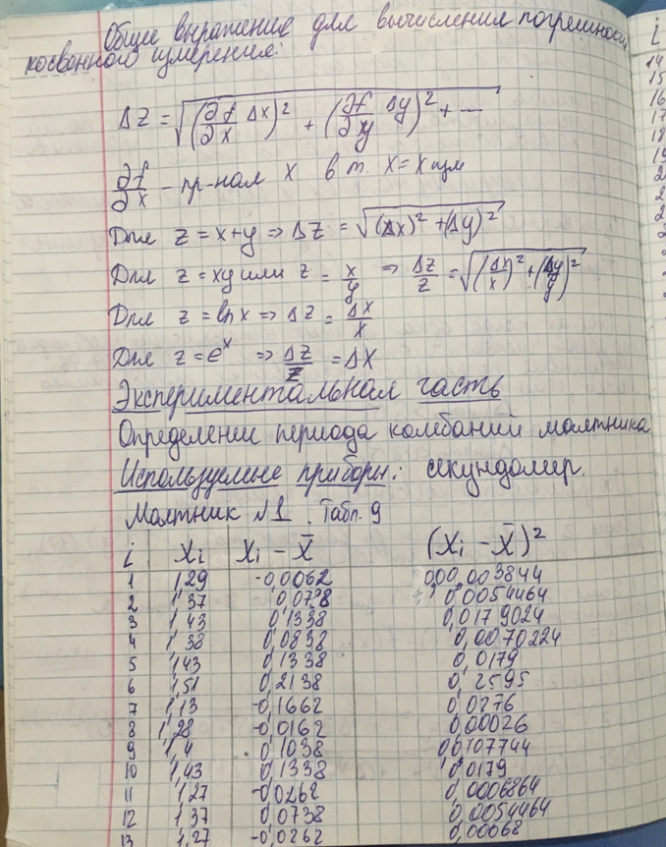 Общие выражение для вычисления погрешнос
косвенного измерения:
ΔZ = √((∂f/∂x Δx)² + (∂f/∂y Δy)² + ...
∂f/∂x - пр-ная X в т. X = X изм
Для z = x+y ⇒ ΔZ = √((Δx)² + (Δy)²
Для z = xy или z = x/y ⇒ ΔZ/Z = √((Δx/x)² + (Δy/y)²
Для z = ln x ⇒ ΔZ = ΔX/X
Для z = e^x ⇒ ΔZ/Z = ΔX
Экспериментальная часть
Определении периода колебаний маятника
Используемые приборы: секундомер.
Маятник №1. Табл. 9
i Xi Xi - X̄ (Xi - X̄)²
1 1,29 -0,0062 0,00,003844
2 1,37 0,0738 0,0054464
3 1,43 0,1338 0,0179024
4 1,38 0,0838 0,0070224
5 1,43 0,1338 0,0179
6 1,51 0,2138 0,2595
7 1,13 -0,1662 0,0276
8 1,28 -0,0162 0,00026
9 1,4 0,1038 0,0107744
10 1,43 0,1338 0,0179
11 1,27 -0,0262 0,0006864
12 1,37 0,0738 0,0054464
13 1,27 -0,0262 0,00068
i
14
15
16
17
18
19